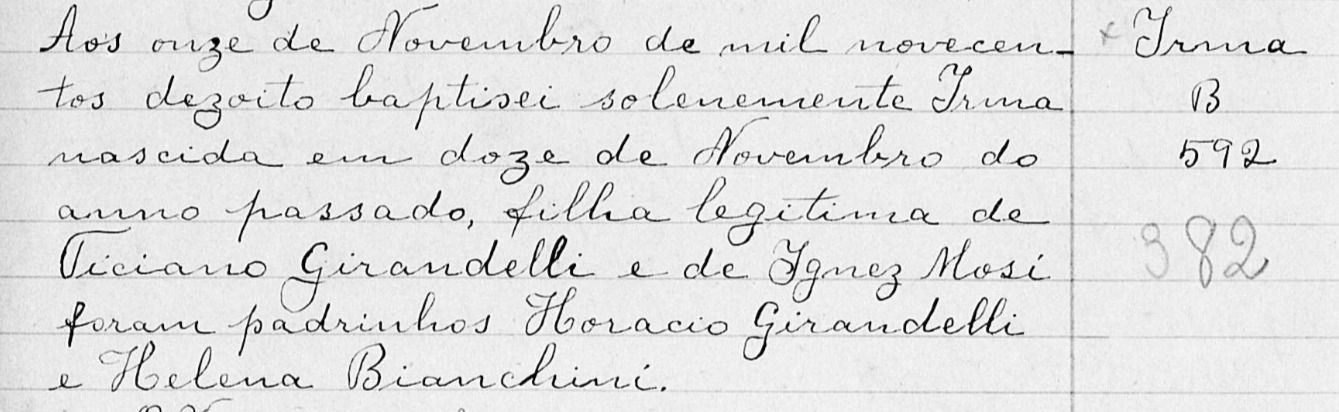 Aos onze de Novembro de mil novecen-
tos dezoito baptisei solenemente Irma
nascida em doze de Novembro do
anno passado, filha legitima de
Ticiano Girandelli e de Ignez Mosi
foram padrinhos Horacio Girandelli
e Helena Bianchini.
x Irma
B
592
382